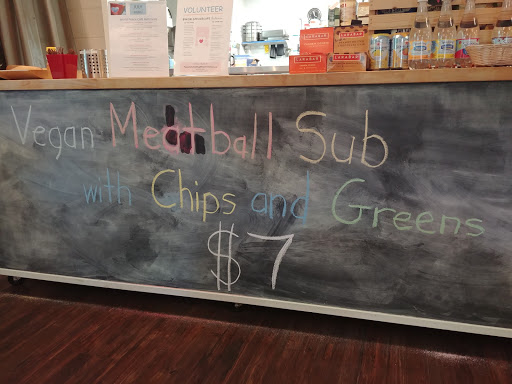 VOLUNTEER
LARABAR
LARABAR
LARABAR
Vegan Meatball Sub
with Chips and Greens
$7